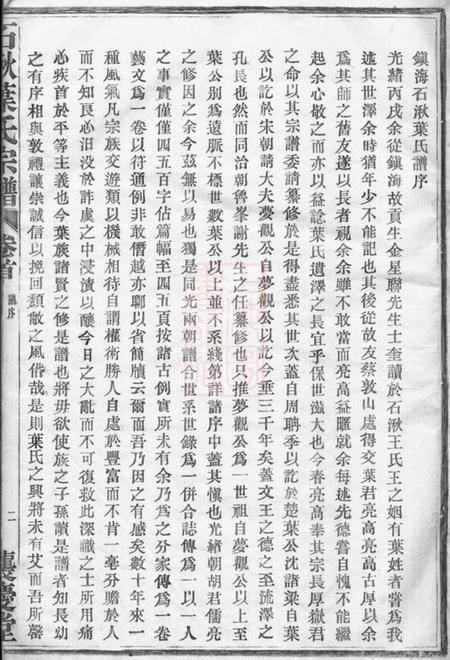 鎮海石湫葉氏譜序
光緒丙戌余從鎮海故貢生金星聯先生士奎讀於石湫王氏王之姻有葉姓者嘗爲我
述其世澤余時猶年少不能記也其後從故友蔡敦山處得交葉君亮高亮高古厚以余
爲其師之舊友遂以長者視余余雖不敢當而亮高益暱就余每述先德嘗自愧不能繼
起余心敬之而亦以益諗葉氏遺澤之長宜乎保世滋大也今春亮高奉其宗長厚嶽君
之命以其宗譜委請纂修於是得盡悉其世次蓋自周聃季以訖於楚葉公沈諸梁自葉
公以訖於宋朝請大夫夢觀公自夢觀公以訖今垂三千年矣蓋文王之德之至流澤之
孔長也然而同治朝魯峯謝先生之任纂修也只推夢觀公爲一世祖自夢觀公以上至
葉公別爲遠脈不標世數葉公以上並不系綫第詳諸序中蓋其愼也光緒朝胡君儒亮
之修因之余今茲無以易也獨是同光兩朝譜合世系世錄爲一併合誌傳爲一以一人
之事實僅僅四五百字佔篇幅至四五頁按諸古例實所未有余乃爲之分家傳爲一卷
藝文爲一卷以符通例非敢僭越亦聊以省簡牘云爾而吾乃因之有感矣數十年來一
種風氣凡宗族交遊類以機械相待自謂權術勝人自處於豐富而不肯一毫分贍於人
而不知良心汨沒於詐虞之中浸漬以釀今日之大亂而不可復救此深識之士所用痛
心疾首於平等主義也今葉族諸賢之修是譜也將毋欲使族之子孫讀是譜者知長幼
之有序相與敦禮讓崇誠信以挽回頹敝之風俗哉是則葉氏之興將未有艾而吾所馨
石湫葉氏宗譜
卷首
譜序
二